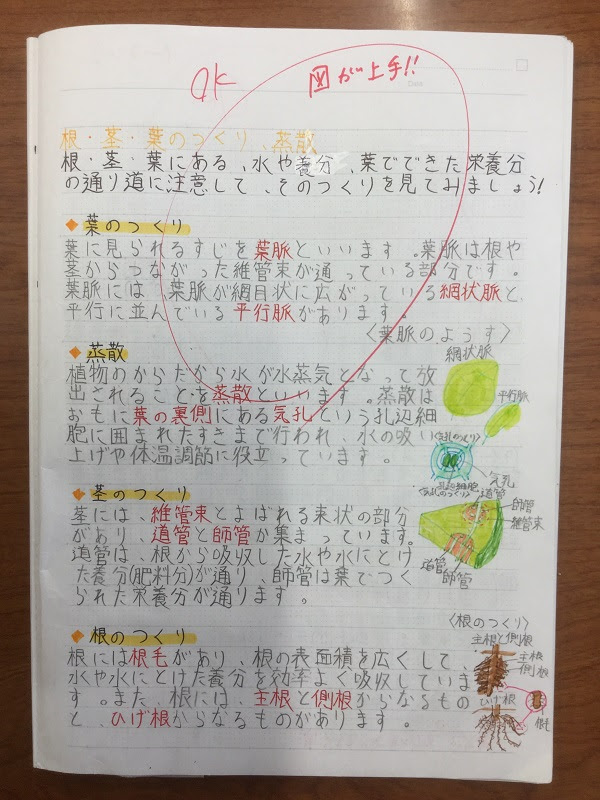 OK
図が上手!!
根・茎・葉のつくり、蒸散
根・茎・葉にある、水や養分、葉でできた栄養分
の通り道に注意して、そのつくりを見てみましょう!
◆葉のつくり
葉に見られるすじを葉脈といいます。葉脈は根や
茎からつながった維管束が通っている部分です。
葉脈には、葉脈が網目状に広がっている網状脈と、
平行に並んでいる平行脈があります。
〈葉脈のようす〉
網状脈
平行脈
◆蒸散
植物のからだから水が水蒸気となって放
出されることを蒸散といいます。蒸散は
おもに葉の裏側にある気孔という孔辺細
胞に囲まれたすきまで行われ、水の吸い
上げや体温調節に役立っています。
〈気孔のつくり〉
気孔
孔辺細胞
◆茎のつくり
茎には、維管束とよばれる束状の部分
があり、道管と師管が集まっています。
道管は、根から吸収した水や水にとけ
た養分(肥料分)が通り、師管は葉でつく
られた栄養分が通ります。
道管
師管
維管束
道管
師管
◆根のつくり
根には根毛があり、根の表面積を広くして、
水や水にとけた養分を効率よく吸収していま
す。また、根には、主根と側根からなるもの
と、ひげ根からなるものがあります。
〈根のつくり〉
主根と側根
主根
側根
ひげ根